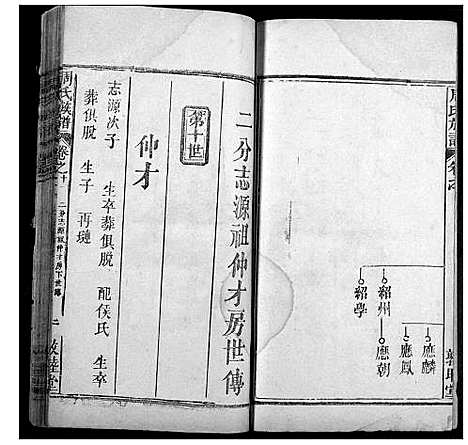 周氏族譜
卷之
應麟
應鳳
應朝
紹州
紹學
二分志源祖仲才房世傳
第十世
仲才
志源次子 生卒葬俱脫 配侯氏 生卒
葬俱脫 生子 再璉
周氏族譜
卷之十
二分志源祖仲才房下世傳
二
敦睦堂